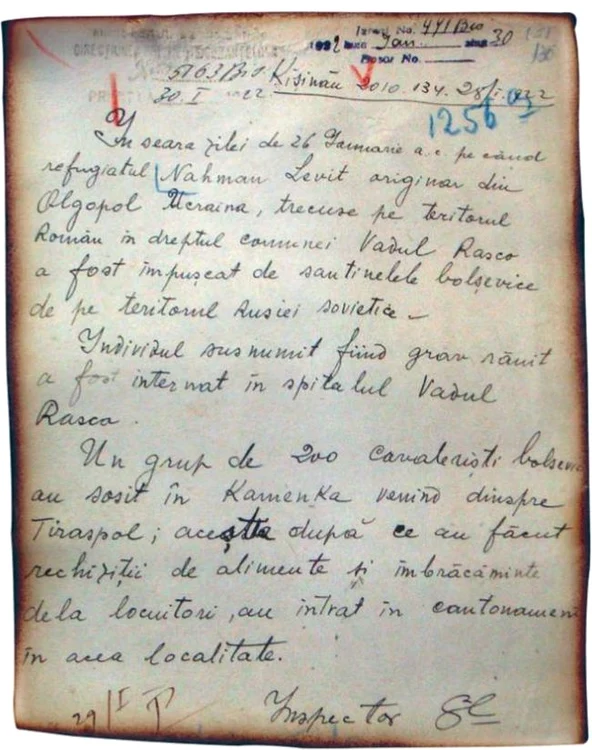 DIRECȚIUNEA
Izvod No. 471/Bio
1922 luna Jan. ziua 30
Dosar No.
5163/Bio
30. I 922.
Kișinău 2010. 134. 28/I. 922
1256
În seara zilei de 26 Ianuarie a.c. pe când
refugiatul Nahman Levit originar din
Olgopol Ucraina, trecuse pe teritorul
Român în dreptul comunei Vadul Rasco
a fost împușcat de santinelele bolșevice
de pe teritorul Rusiei sovietice –
Individul susnumit fiind grav rănit
a fost internat în spitalul Vadul
Rasco.
Un grup de 200 cavaleriști bolsevici
au sosit în Kamenka venind dinspre
Tiraspol; aceștia după ce au făcut
rechiziții de alimente și îmbrăcăminte
dela locuitori, au intrat în cantonament
în acea localitate.
29/I
Inspector